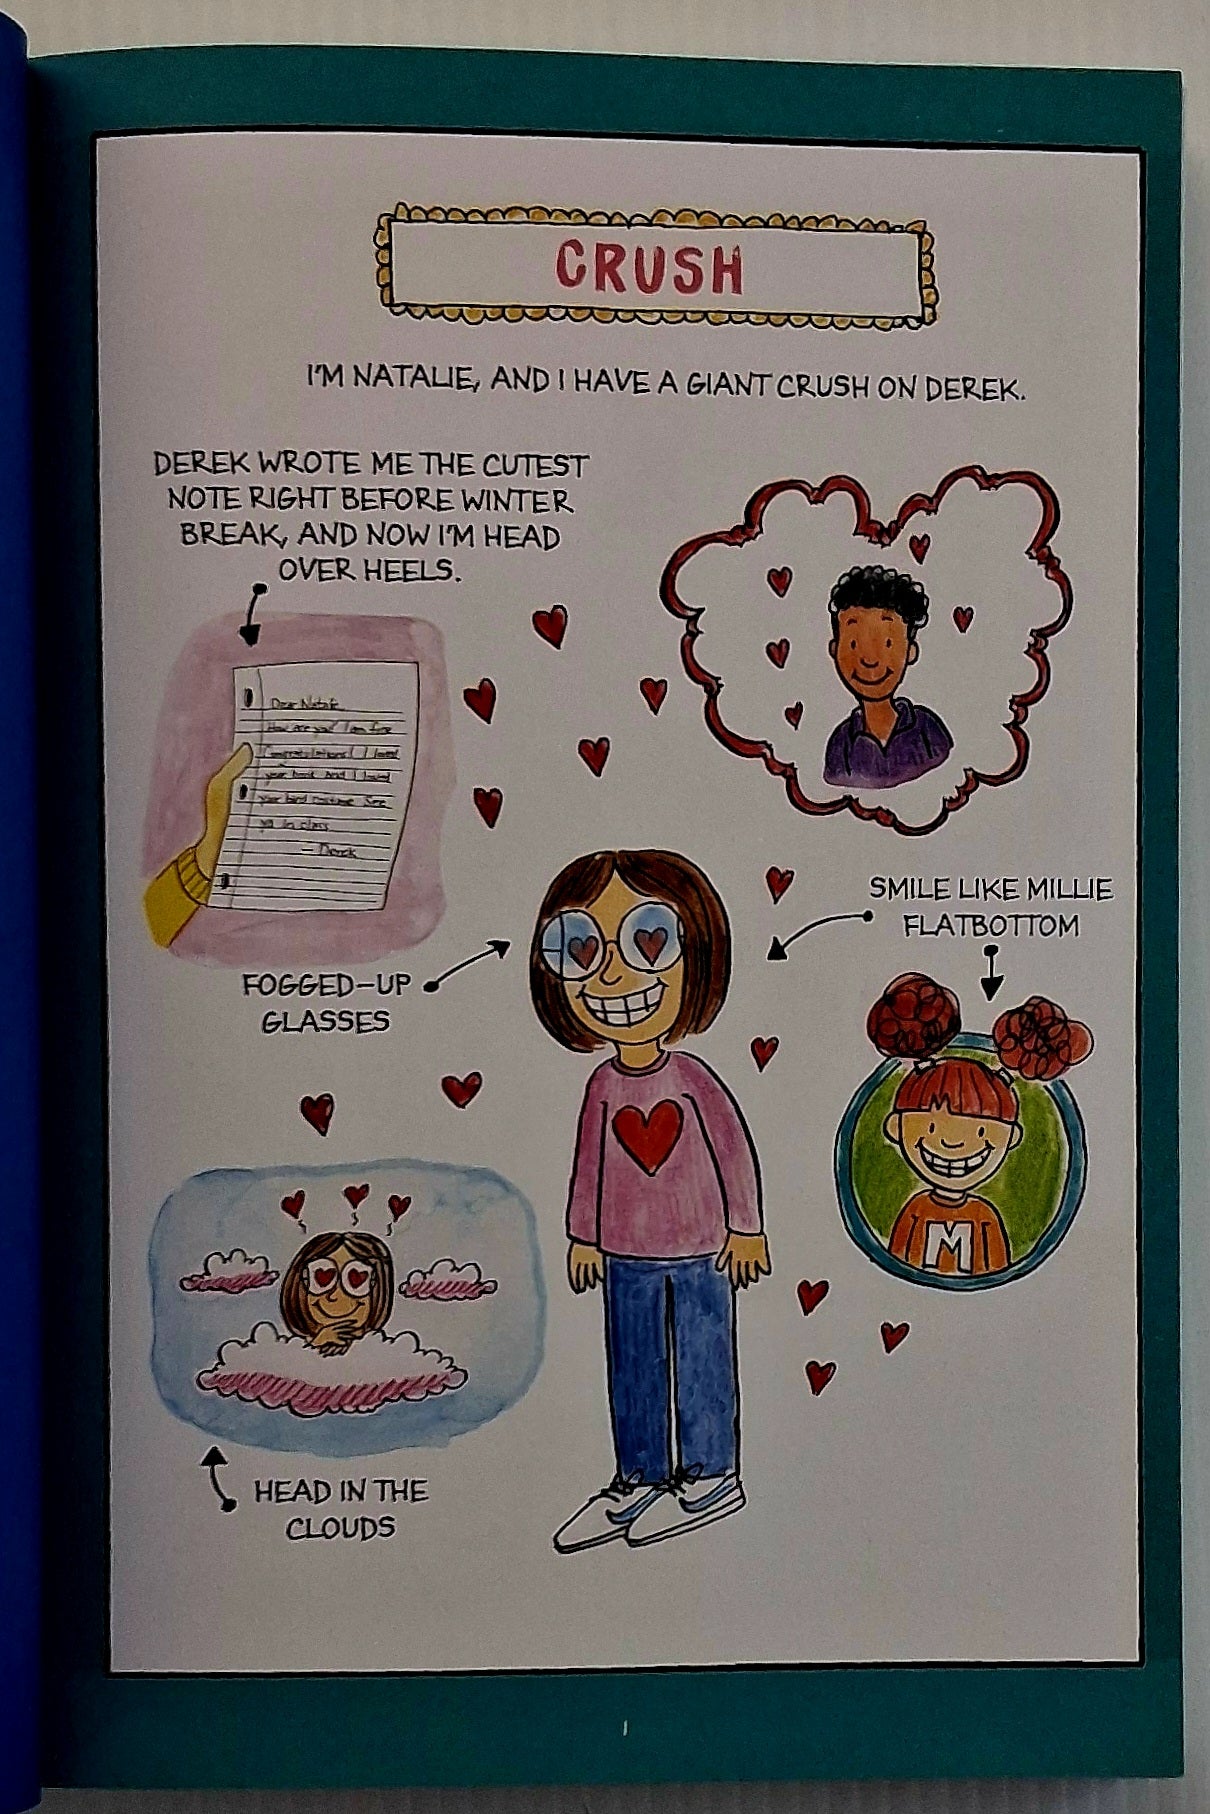 CRUSH
I'M NATALIE, AND I HAVE A GIANT CRUSH ON DEREK.
DEREK WROTE ME THE CUTEST
NOTE RIGHT BEFORE WINTER
BREAK, AND NOW I'M HEAD
OVER HEELS.
Dear Natalie
How are you? I am fine
Congratulations! I loved
your book and I loved
your bird costume See
ya in class
— Derek
SMILE LIKE MILLIE
FLATBOTTOM
FOGGED-UP
GLASSES
M
HEAD IN THE
CLOUDS
1